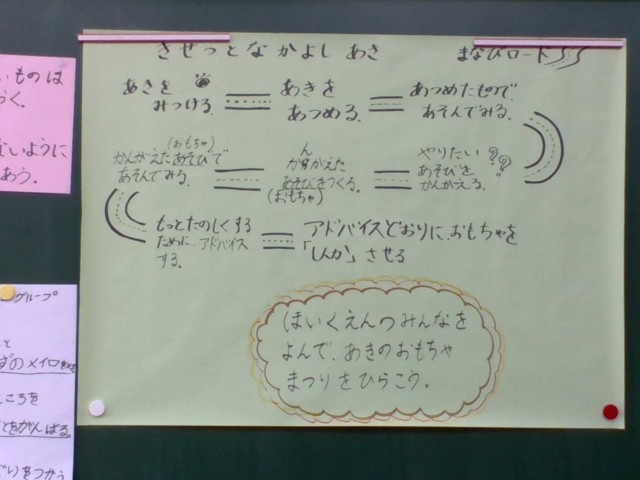 きせつとなかよし あき
まなびロード
あきを
みつける。
あきを
あつめる。
あつめたもので、
あそんでみる。
やりたい
あそびを
かんがえる。
??
ん
かがえた
あそびをつくる。
(おもちゃ)
(おもちゃ)
かんがえたあそびで
あそんでみる。
もっとたのしくする
ために、アドバイス
する。
アドバイスどおりに、おもちゃを
「しんか」させる
ほいくえんのみんなを
よんで、あきのおもちゃ
まつりをひらこう。
いものは
らく。
ないように
あう。
グループ
と
ずのメイロ
ころを
とをがんばる
ぐりをつかう